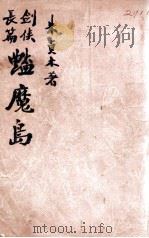 朱貞木著
劍俠
長篇
蠱魔島